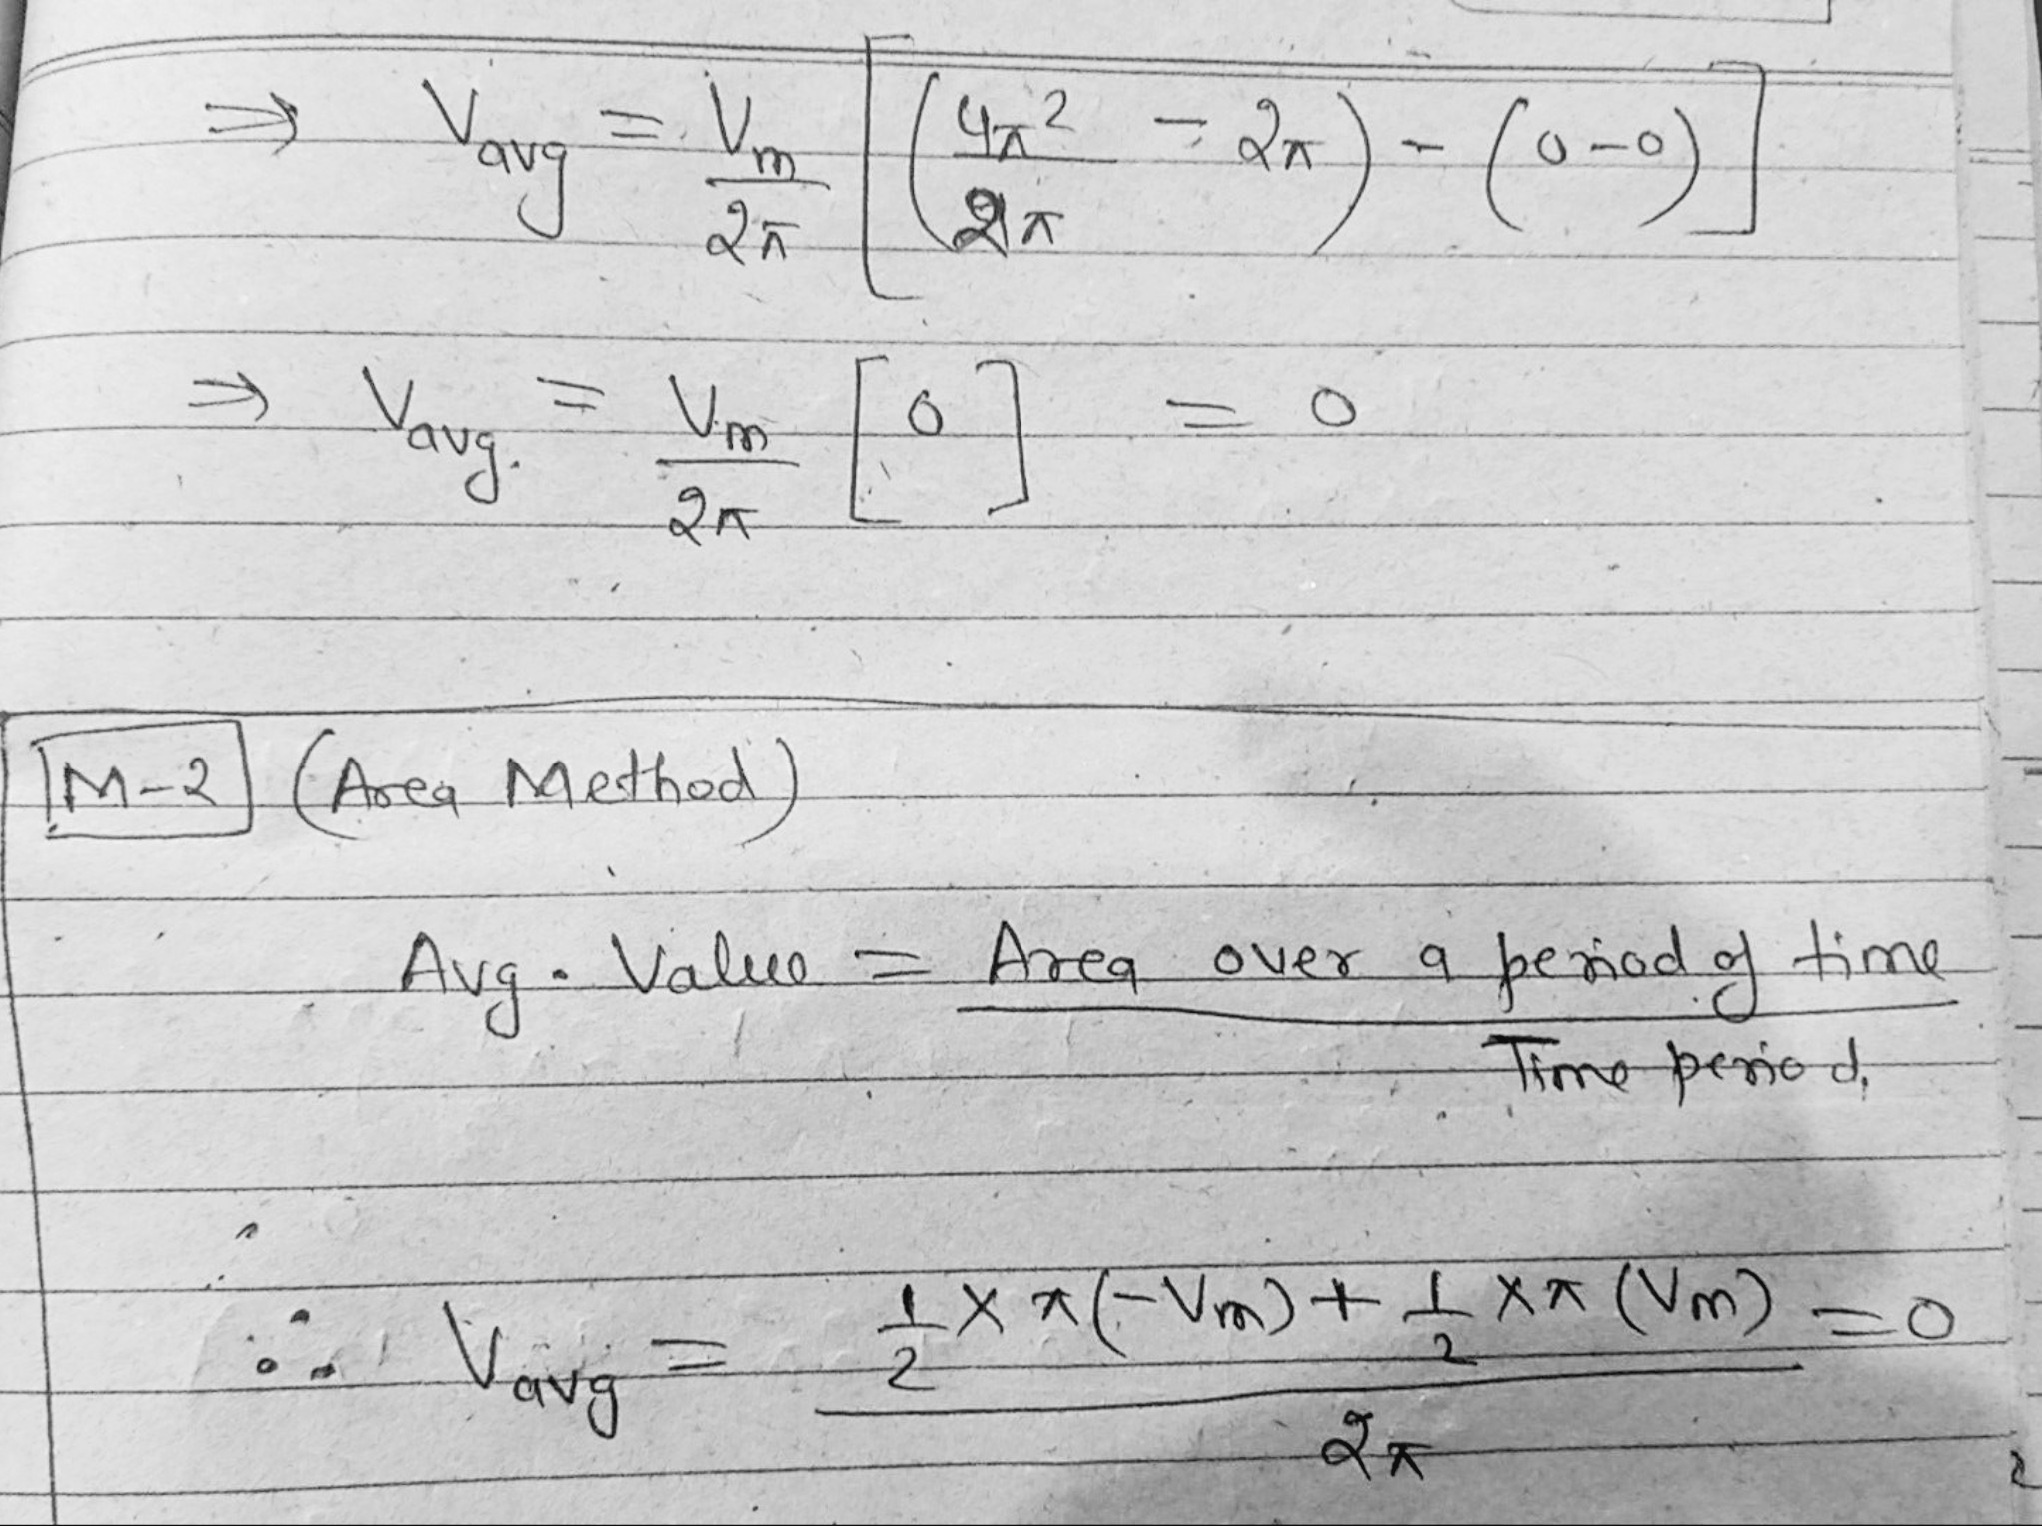 ⇒ Vavg = Vm/2π [(4π²/2π - 2π) - (0-0)]
⇒ Vavg. = Vm/2π [0] = 0
M-2 (Area Method)
Avg. Value = Area over a period of time
Time period.
∴ Vavg = (1/2 × π(-Vm) + 1/2 × π(Vm))/2π = 0